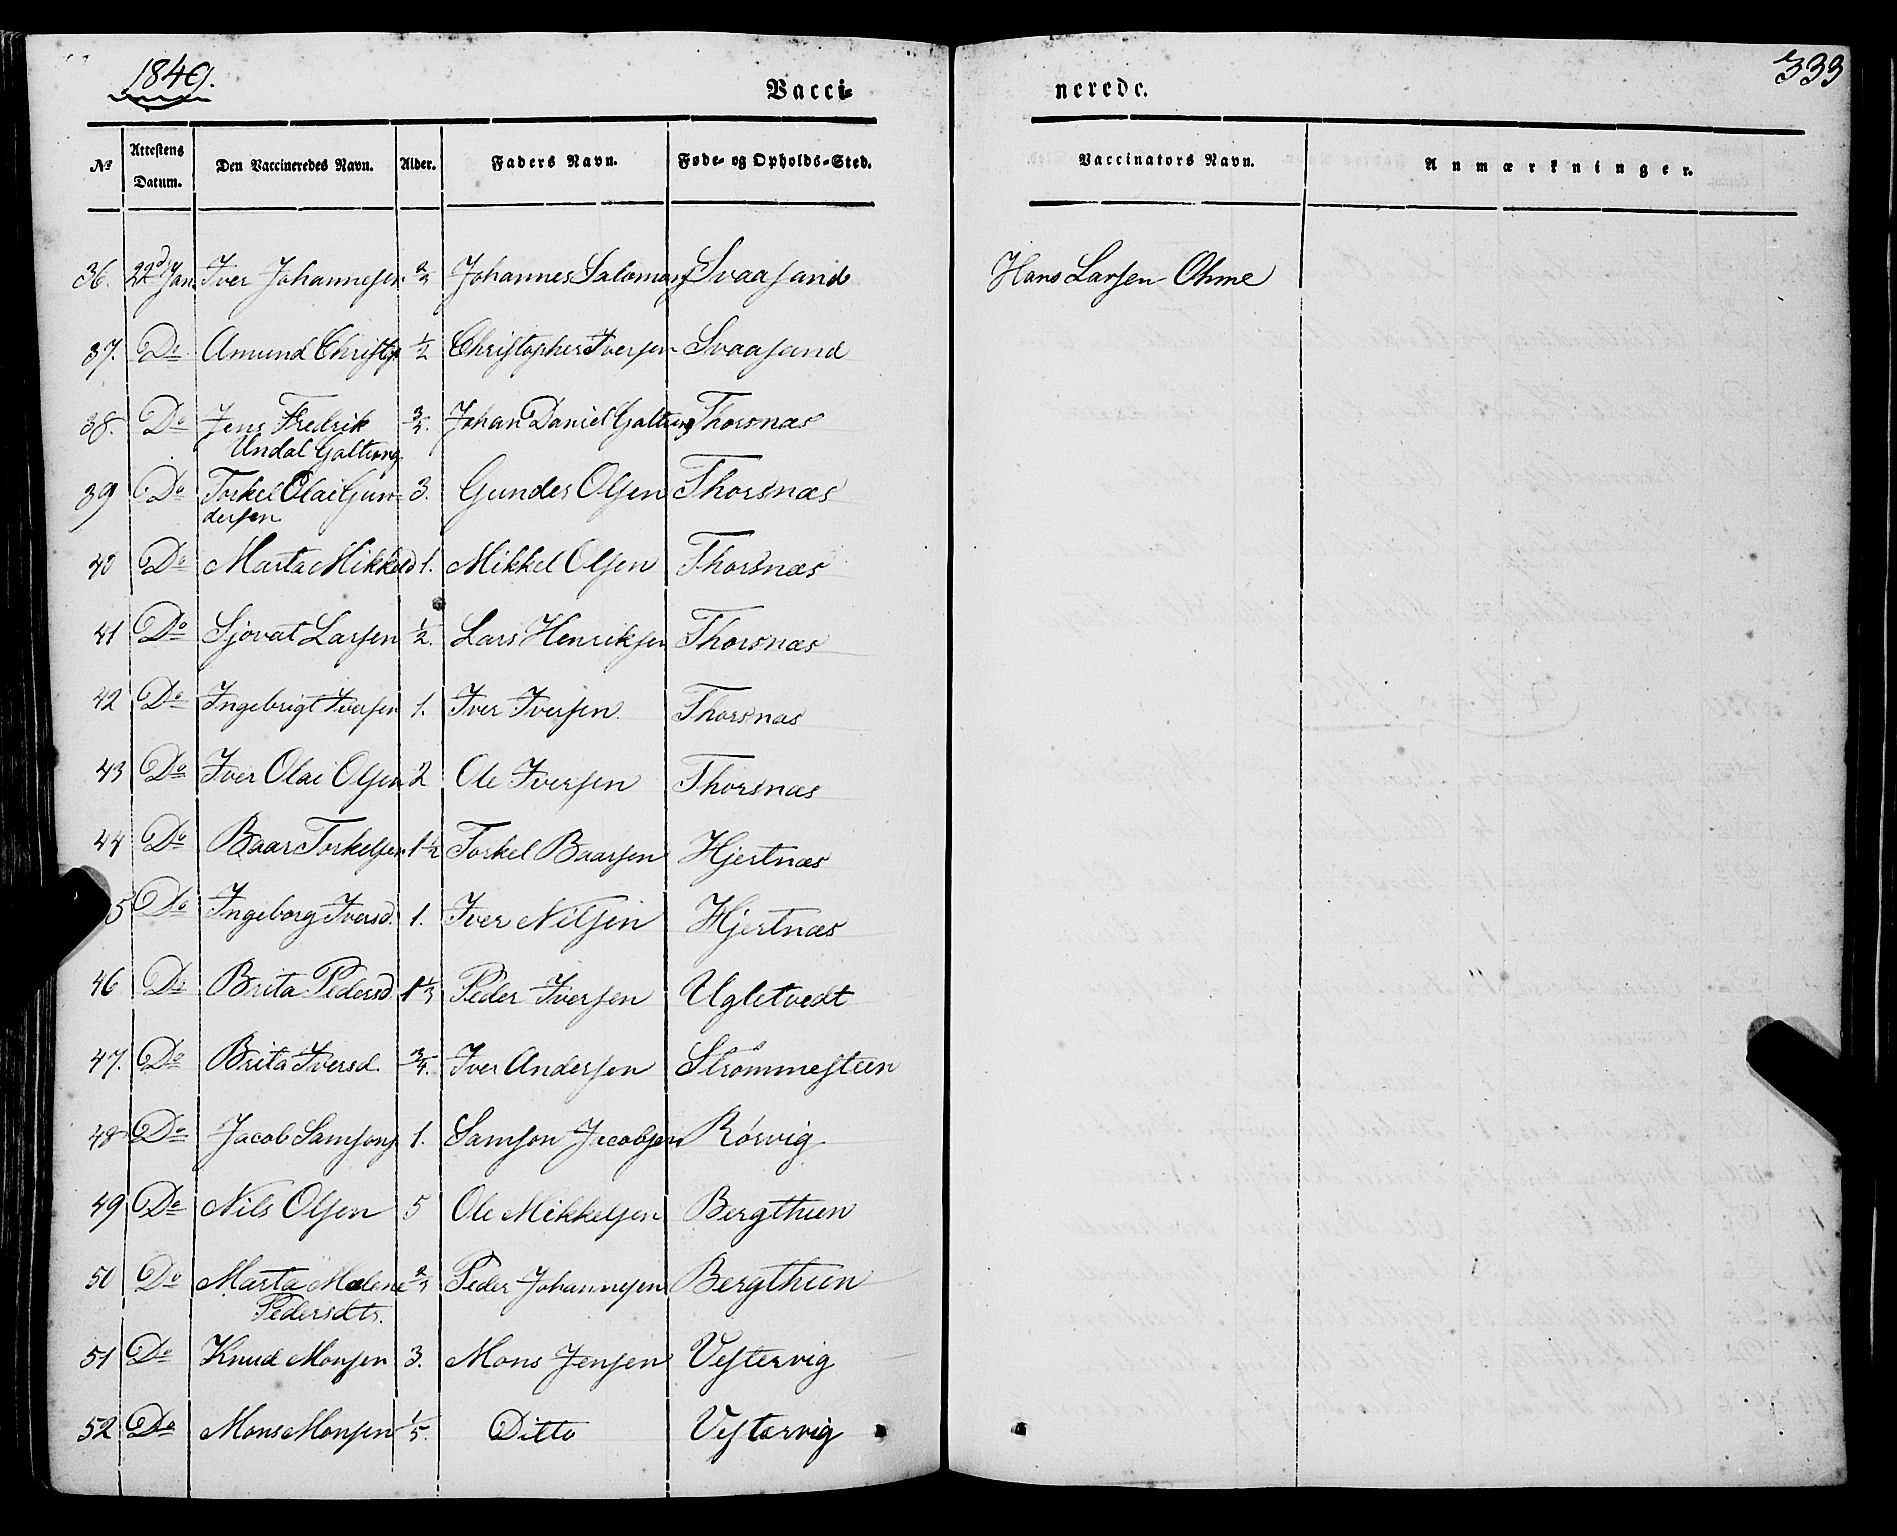 1849.
Vacci- nerede.
333
No Attestens Datum. Den Vaccineredes Navn. Alder. Faders Navn. Føde- og Opholds-Sted. Vaccinators Navn. Anmærkninger.
36. 22d Jan Iver Johannesen 2/3 Johannes Salomons Svaasand Hans Larsen Ohme
37. Do Amund Christop 1/2 Christopher Iversen Svaasand
38. Do Jens Fredrik 3/4. Johan Daniel Galtung Thorsnæs
Undal Galtung
39 Do Torkel Olai Gun- 3. Gunder Olsen Thorsnæs
dersen
40 Do Marta Mikkelsd 1. Mikkel Olsen Thorsnæs
41 Do Sjovat Larsen 1/2. Lars Henriksen Thorsnæs
42 Do Ingebrigt Iversen 1. Iver Iversen Thorsnæs
43 Do Iver Olai Olsen 2 Ole Iversen Thorsnæs
44 Do Baar Torkelsen 1 1/2 Torkel Baarsen Hjertnæs
5 Do Ingeborg Iversd. 1. Iver Nilsen Hjertnæs
46 Do Brita Pedersd. 1 1/3 Peder Iversen Ugletvedt
47. Do Brita Iversd. 3/4. Iver Andersen Strømmesteen
48 Do Jacob Samsons 1. Samson Jacobsen Rørvig
49 Do Nils Olsen 5 Ole Mikkelsen Bergthun
50 Do Marta Malene 2/3 Peder Johannesen Bergthun
Pedersdtr.
51 Do Knud Monsen 3. Mons Jensen Vestervig
52 Do Mons Monsen 1/5. Ditto Vestervig